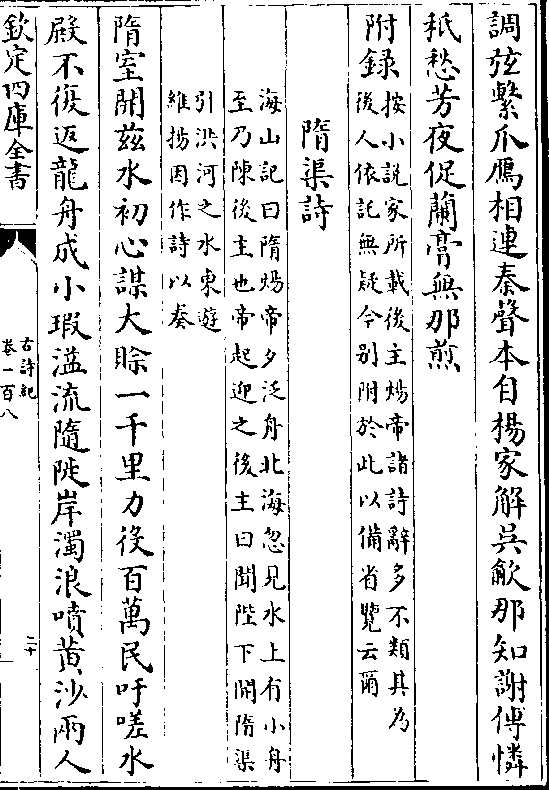 調弦繫爪鴈相連秦聲本自楊家解吳歈那知謝傅憐
秖愁芳夜促蘭膏無那煎
附録
按小説家所載後主煬帝諸詩辭多不類其為
後人依託無疑今别附於此以備省覽云爾
隋渠詩
海山記曰隋煬帝夕泛舟北海忽見水上有小舟
至乃陳後主也帝起迎之後主曰聞陛下開隋渠
引洪河之水東遊
維揚因作詩以奏
隋室開兹水初心謀大賖一千里力役百萬民吁嗟水
殿不復返龍舟成小瑕溢流隨陡岸濁浪噴黄沙兩人
欽定四庫全書
古詩紀
卷一百八
二十